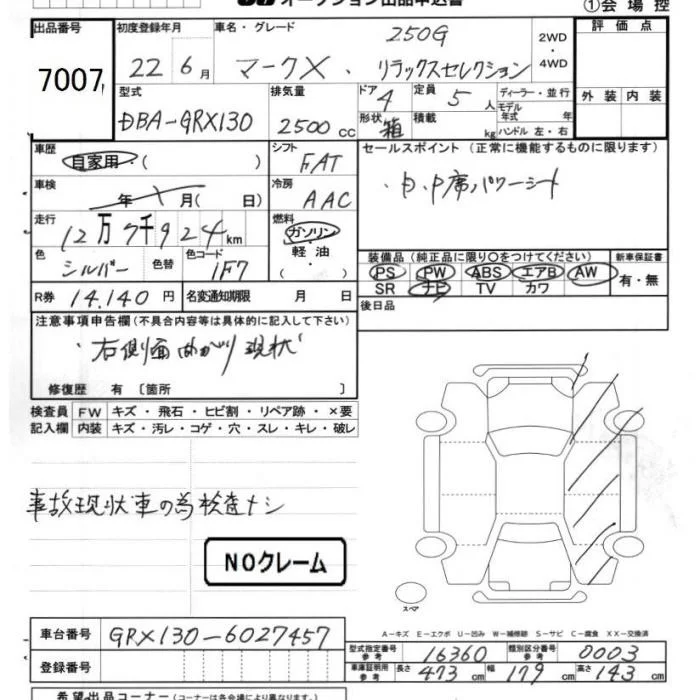 オークション出品申込書
①会場控
出品番号 初度登録年月 車名・グレード 評価点
7007 22年6月 マークX・250G リラックスセレクション 2WD・4WD
型式 排気量 ドア 4 定員 5人 ディーラー・並行 外装 内装
DBA-GRX130 2500cc 形状 箱 積載 kg モデル年式 年 ハンドル 左・右
車歴 自家用・( ) シフト FAT セールスポイント (正常に機能するものに限ります)
車検 年 月( 日) 冷房 AAC
走行 12万7千924km 燃料 ガソリン・軽油・( )
色 シルバー 色替 色コード 1F7
装備品 (純正品に限り○をつけてください) 新車保証書
PS PW ABS エアB AW 有・無
SR ナビ TV カワ
R券 14,140円 名変通知期限 月 日 後日品
注意事項申告欄 (不具合内容等は具体的に記入して下さい)
右側面まがり現状
修復歴 有 [箇所 ]
検査員記入欄 FW キズ・飛石・ヒビ割・リペア跡・×要
内装 キズ・汚レ・コゲ・穴・スレ・キレ・破レ
事故現状車の為検査ナシ
NOクレーム
スペア
A-キズ E-エクボ U-凹み W-補修跡 S-サビ C-腐食 XX-交換済
車台番号 GRX130-6027457
型式指定番号 参考 16360 類別区分番号 参考 0003
登録番号 車庫証明用 参考 長さ 473cm 幅 179cm 高さ 143cm
希望出品コーナー (コーナーは各会場により異なります。)